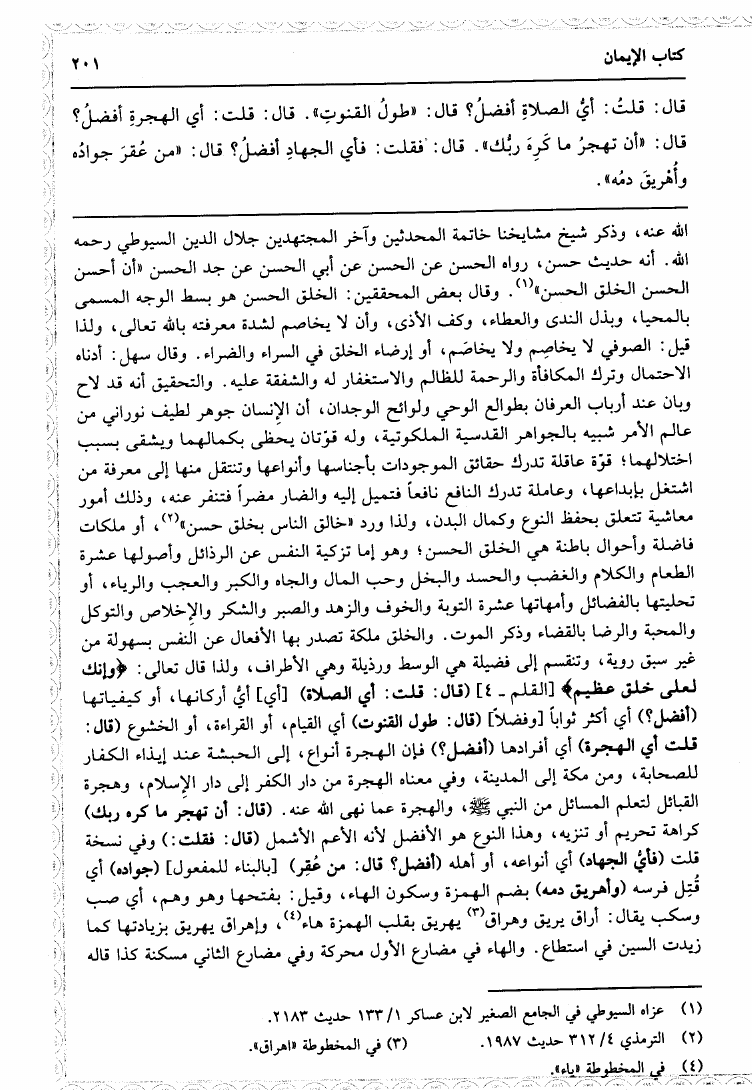 كتاب الإيمان
٢٠١
قال: قلتُ: أيُّ الصلاةِ أفضلُ؟ قال: «طولُ القنوتِ». قال: قلت: أي الهجرةِ أفضلُ؟
قال: «أن تهجرُ ما كَرِهَ ربُّك». قال: فقلت: فأي الجهادِ أفضلُ؟ قال: «من عُقرَ جوادُه
وأُهْريقَ دمُه».
الله عنه، وذكر شيخ مشايخنا خاتمة المحدثين وآخر المجتهدين جلال الدين السيوطي رحمه
الله. أنه حديث حسن، رواه الحسن عن الحسن عن أبي الحسن عن جد الحسن «أن أحسن
الحسن الخلق الحسن»(١). وقال بعض المحققين: الخلق الحسن هو بسط الوجه المسمى
بالمحيا، وبذل الندى والعطاء، وكف الأذى، وأن لا يخاصم لشدة معرفته بالله تعالى، ولذا
قيل: الصوفي لا يخاصِم ولا يخاصَم، أو إرضاء الخلق في السراء والضراء. وقال سهل: أدناه
الاحتمال وترك المكافأة والرحمة للظالم والاستغفار له والشفقة عليه. والتحقيق أنه قد لاح
وبان عند أرباب العرفان بطوالع الوحي ولوائح الوجدان، أن الإنسان جوهر لطيف نوراني من
عالم الأمر شبيه بالجواهر القدسية الملكوتية، وله قوّتان يحظى بكمالهما ويشقى بسبب
اختلالهما؛ قوّة عاقلة تدرك حقائق الموجودات بأجناسها وأنواعها وتنتقل منها إلى معرفة من
اشتغل بإبداعها، وعاملة تدرك النافع نافعاً فتميل إليه والضار مضراً فتنفر عنه، وذلك أمور
معاشية تتعلق بحفظ النوع وكمال البدن، ولذا ورد «خالق الناس بخلق حسن»(٢)، أو ملكات
فاضلة وأحوال باطنة هي الخلق الحسن؛ وهو إما تزكية النفس عن الرذائل وأصولها عشرة
الطعام والكلام والغضب والحسد والبخل وحب المال والجاه والكبر والعجب والرياء، أو
تحليتها بالفضائل وأمهاتها عشرة التوبة والخوف والزهد والصبر والشكر والإخلاص والتوكل
والمحبة والرضا بالقضاء وذكر الموت. والخلق ملكة تصدر بها الأفعال عن النفس بسهولة من
غير سبق روية، وتنقسم إلى فضيلة هي الوسط ورذيلة وهي الأطراف، ولذا قال تعالى: ﴿وإنك
لعلى خلق عظيم﴾ [القلم ـ ٤] (قال: قلت: أي الصلاة) [أي] أيُّ أركانها، أو كيفياتها
(أفضل؟) أي أكثر ثواباً [وفضلاً] (قال: طول القنوت) أي القيام، أو القراءة، أو الخشوع (قال:
قلت أي الهجرة) أي أفرادها (أفضل؟) فإن الهجرة أنواع، إلى الحبشة عند إيذاء الكفار
للصحابة، ومن مكة إلى المدينة، وفي معناه الهجرة من دار الكفر إلى دار الإسلام، وهجرة
القبائل لتعلم المسائل من النبي ﷺ، والهجرة عما نهى الله عنه. (قال: أن تهجر ما كره ربك)
كراهة تحريم أو تنزيه، وهذا النوع هو الأفضل لأنه الأعم الأشمل (قال: فقلت:) وفي نسخة
قلت (فأيُّ الجهاد) أي أنواعه، أو أهله (أفضل؟ قال: من عُقِر) [بالبناء للمفعول] (جواده) أي
قُتِل فرسه (وأهريق دمه) بضم الهمزة وسكون الهاء، وقيل: بفتحها وهو وهم، أي صب
وسكب يقال: أراق يريق وهراق(٣) يهريق بقلب الهمزة هاء(٤)، وإهراق يهريق بزيادتها كما
زيدت السين في استطاع. والهاء في مضارع الأول محركة وفي مضارع الثاني مسكنة كذا قاله
(١) عزاه السيوطي في الجامع الصغير لابن عساكر ١/ ١٣٣ حديث ٢١٨٣.
(٢) الترمذي ٤/ ٣١٢ حديث ١٩٨٧.
(٣) في المخطوطة «اهراق».
(٤) في المخطوطة «ياء».